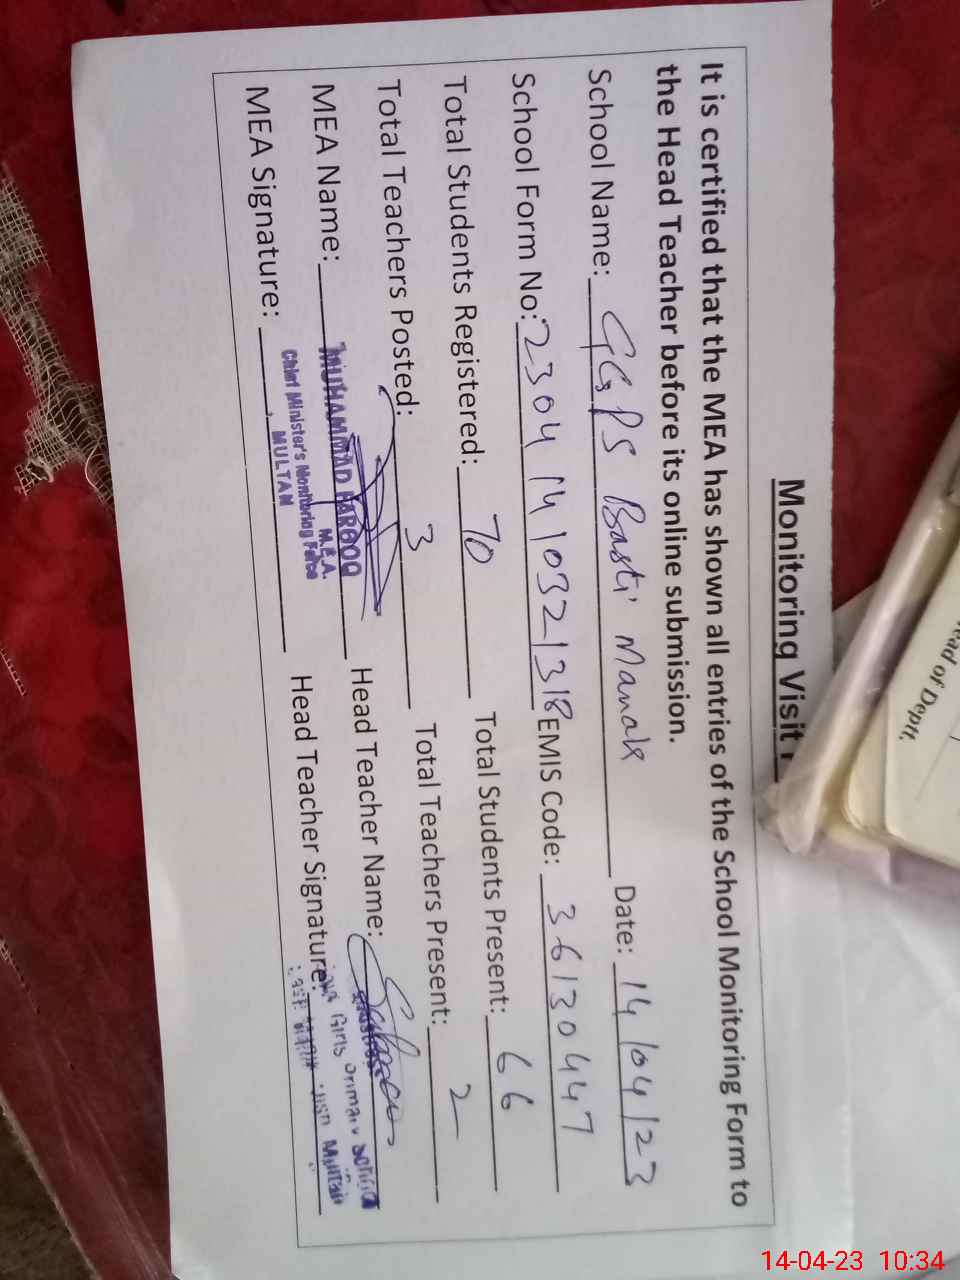 Monitoring Visit
It is certified that the MEA has shown all entries of the School Monitoring Form to
the Head Teacher before its online submission.
School Name: GGPS Basti Manak Date: 14/04/23
School Form No: 23041410321318 EMIS Code: 36130447
Total Students Registered: 70 Total Students Present: 66
Total Teachers Posted: 3 Total Teachers Present: 2
MEA Name: MUHAMMAD FAROOQ Head Teacher Name:
M.E.A.
MEA Signature: Head Teacher Signature:
Chief Minister's Monitoring Force
MULTAN
Girls Primary School
Multan
ead of Deptt.
14-04-23 10:34